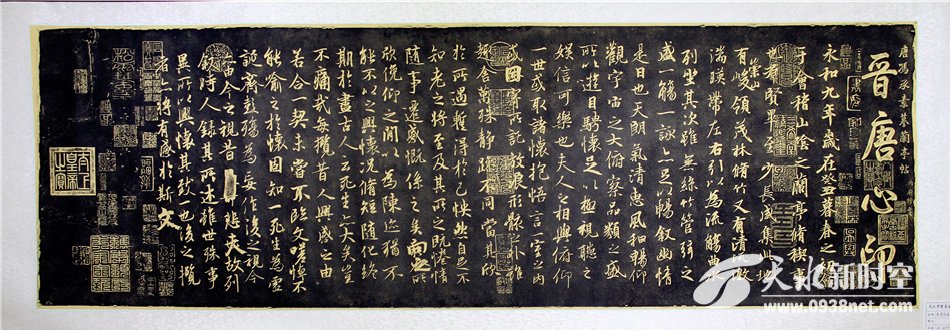 晉唐心印
唐馮承素摹蘭亭帖
永和九年歲在癸丑暮春之初會
于會稽山陰之蘭亭脩稧事
也羣賢畢至少長咸集此地
有崇山峻領茂林脩竹又有清流激
湍暎帶左右引以為流觴曲水
列坐其次雖無絲竹管弦之
盛一觴一詠亦足以暢敘幽情
是日也天朗氣清惠風和暢仰
觀宇宙之大俯察品類之盛
所以遊目騁懷足以極視聽之
娛信可樂也夫人之相與俯仰
一世或取諸懷抱悟言一室之內
或因寄所託放浪形骸之外雖
趣舍萬殊靜躁不同當其欣
於所遇蹔得於己怏然自足不
知老之將至及其所之既惓情
隨事遷感慨係之矣向之所
欣俛仰之間以為陳迹猶不
能不以之興懷況脩短隨化終
期於盡古人云死生亦大矣豈
不痛哉每攬昔人興感之由
若合一契未嘗不臨文嗟悼不
能喻之於懷固知一死生為虛
誕齊彭殤為妄作後之視今
亦由今之視昔悲夫故列
敘時人錄其所述雖世殊事
異所以興懷其致一也後之攬
者亦將有感於斯文
天水新时空
www.0938net.com